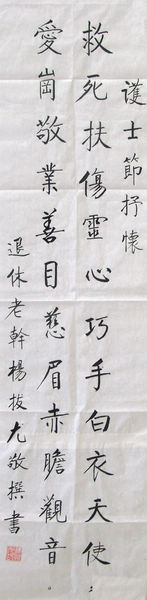 護士節抒懷
救死扶傷靈心巧手白衣天使：
愛崗敬業善目慈眉赤膽觀音。
退休老幹楊拔尤敬撰書